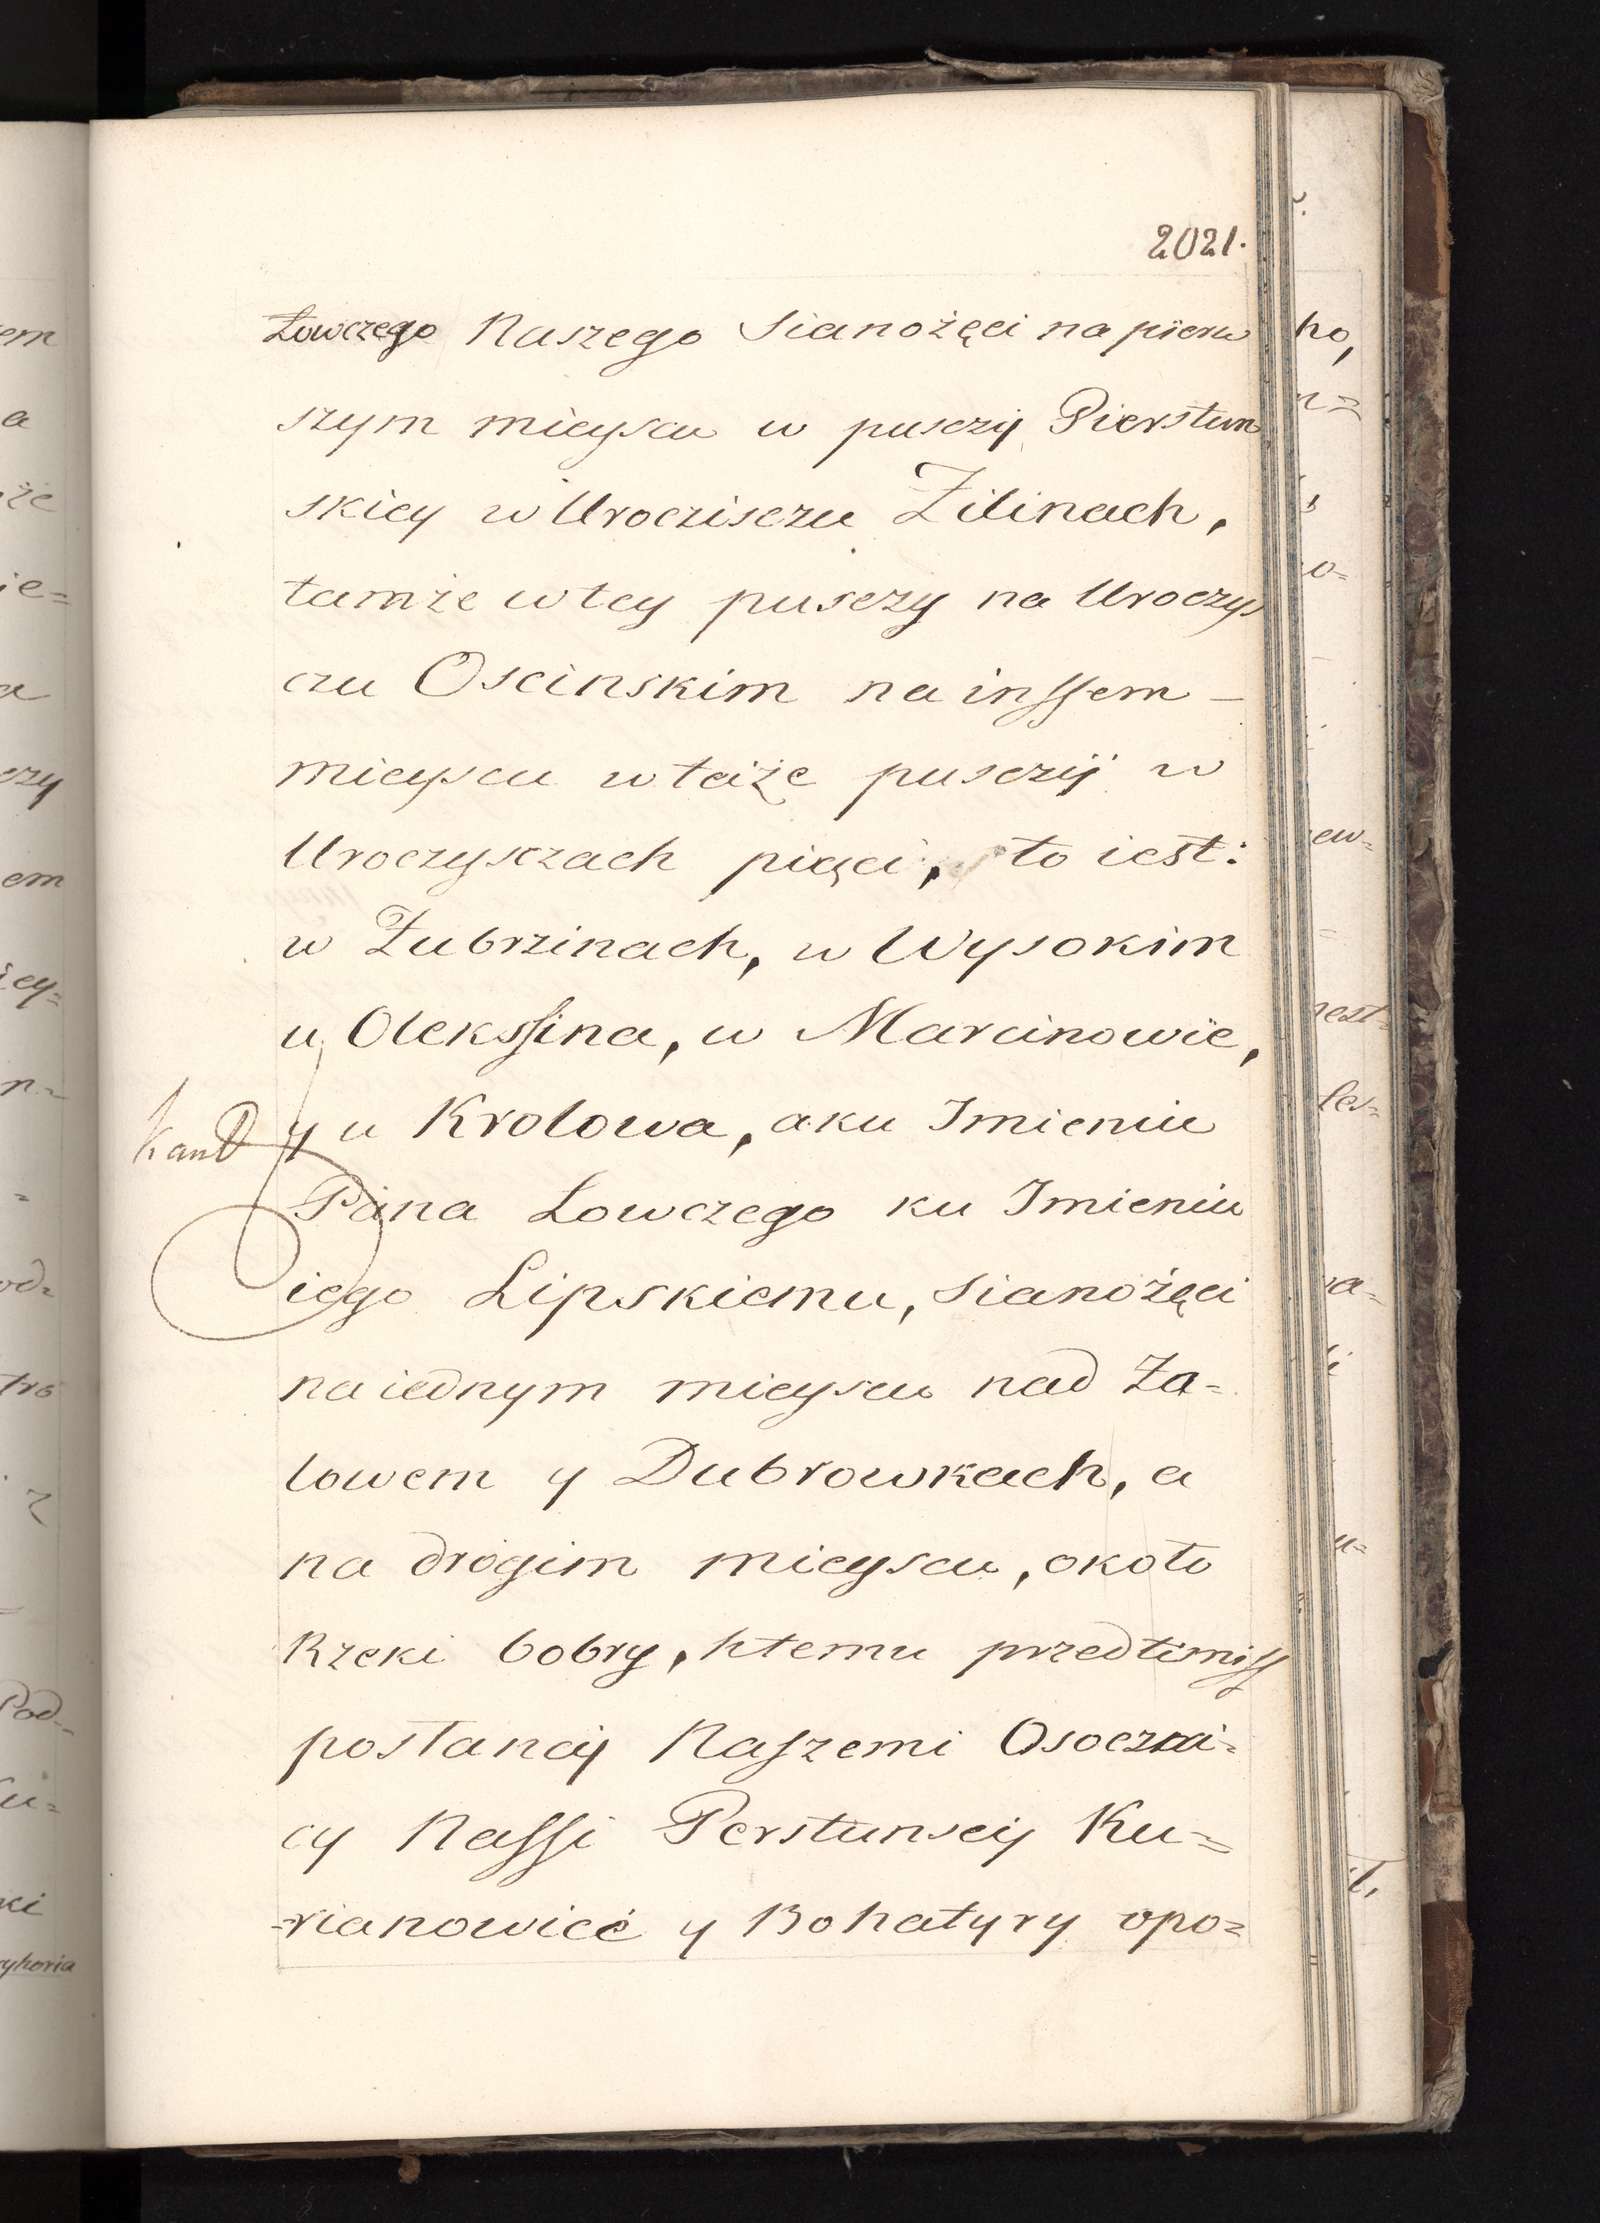 2021.
Łowczego Naszego Sianożęci na pierw
szym mieyscu w pusczy Pierstun
skiey w Urocziszczu Żilinach,
tamże w tey pusczy na Uroczys
czu Oscinskim na inssem –
mieyscu w teiże pusczij w
Uroczysczach pięci, to iest:
w Żubrzinach, w Wysokim
u Olekssina, w Marcinowie,
y u Krolowa, a ku Imieniu
Pana Łowczego ku Imieniu
iego Lipskiemu, Sianożęci
na iednym mieyscu nad Ża=
lowem y Dubrowkach, a
na drógim mieyscu, około
Rzeki bobry, htemu przedtimiss
postancij Naszemi Osoczni=
cy Nassi Perstunscij Ku=
=rianowicé y Bohatyry opo=